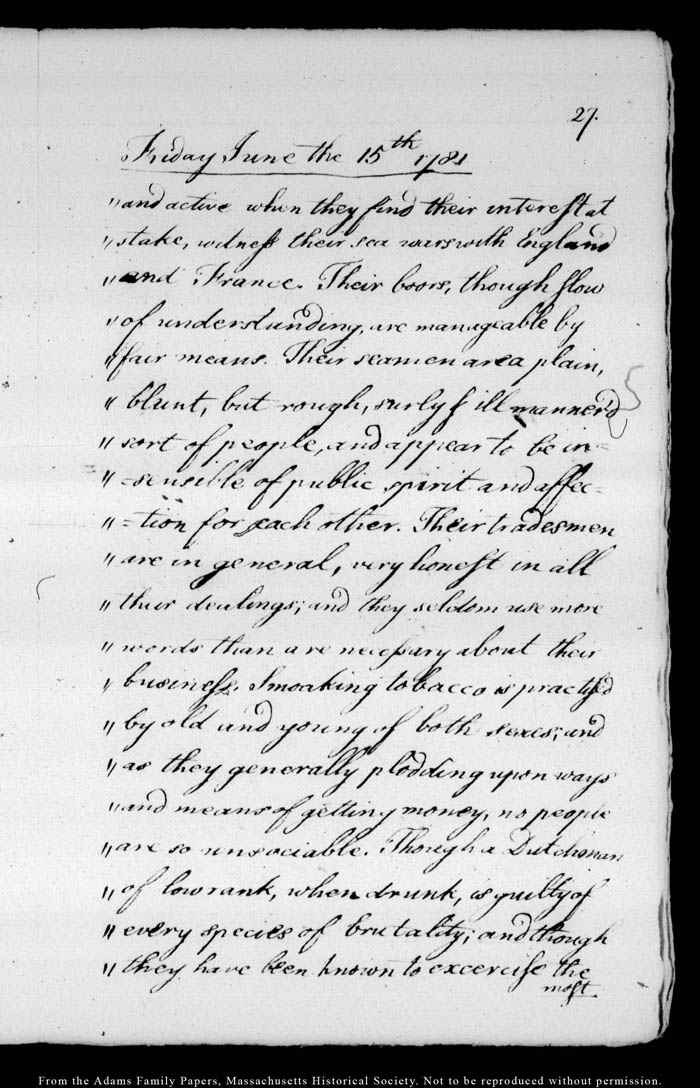 27.
Friday June the 15th 1781
"and active when they find their interest at
"stake, witness their sea wars with England
"and France. Their boors, though slow
"of understanding, are manageable by
"fair means. Their seamen are a plain,
"blunt, but rough, surly & ill manner'd
"sort of people, and appear to be in=
"=sensible of public spirit and affec=
"=tion for each other. Their tradesmen
"are in general, very honest in all
"their dealings; and they seldom use more
"words than are necessary about their
"business. Smoaking tobacco is practised
"by old and young of both sexes; and
"as they generally plodding upon ways
"and means of getting money, no people
"are so unsociable. Though a Dutchman
"of low rank, when drunk, is guilty of
"every species of brutality; and though
"they have been known to excercise the
most
From the Adams Family Papers, Massachusetts Historical Society. Not to be reproduced without permission.